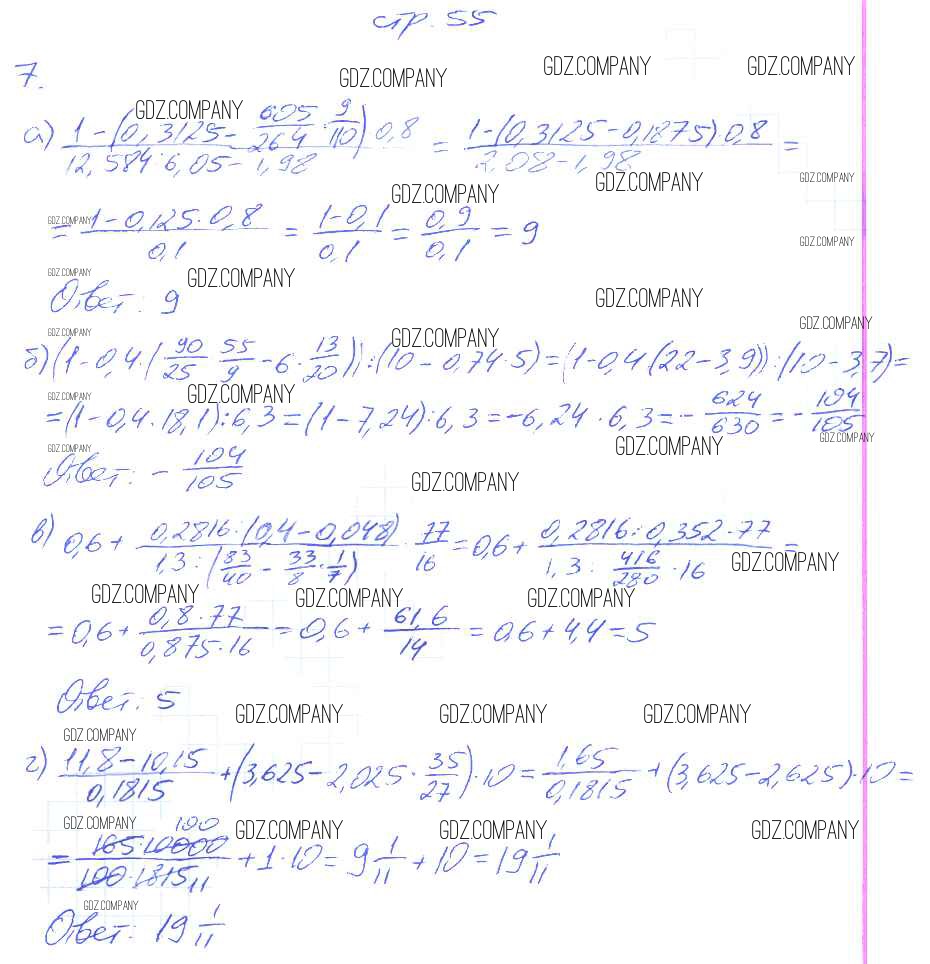 стр. 55
7.
а) (1-(0,3125-605/264·9/110)·0,8)/(12,584:6,05-1,98) = (1-(0,3125-0,1875)·0,8)/(2,08-1,98) =
= (1-0,125·0,8)/0,1 = (1-0,1)/0,1 = 0,9/0,1 = 9
Ответ: 9
б) (1-0,4·(90/25·55/9-6·13/20)):(10-0,74·5)=(1-0,4(22-3,9)):(10-3,7)=
=(1-0,4·18,1):6,3=(1-7,24):6,3=-6,24·6,3=-624/630=-104/105
Ответ: -104/105
в) 0,6+(0,2816:(0,4-0,048))/(1,3:(83/40-33/8·1/7))·77/16=0,6+(0,2816:0,352·77)/(1,3:416/280·16)=
=0,6+(0,8·77)/(0,875·16)=0,6+61,6/14=0,6+4,4=5
Ответ: 5
г) (11,8-10,15)/0,1815+(3,625-2,025·35/27)·10=1,65/0,1815+(3,625-2,625)·10=
100
=(165·10000)/(100·1815 11)+1·10=9 1/11+10=19 1/11
Ответ: 19 1/11
GDZ.COMPANY